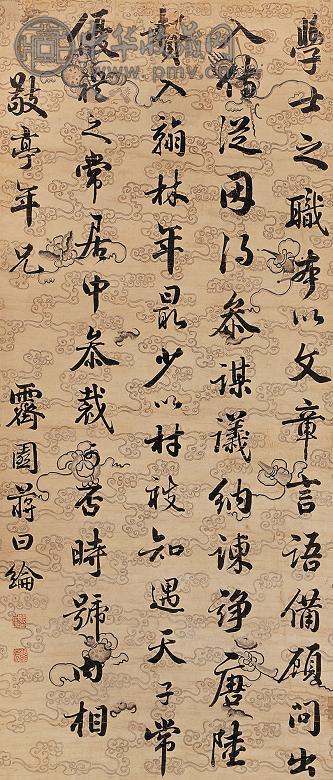 學士之職本以文章言語備顧問出
入侍從因得參謀議納諫諍唐陸
贄入翰林年最少以材被知遇天子常
優禮之常居中參裁可否時號内相
敬亭年兄 霽園蔣曰綸
中华收藏网
www.pmv.com